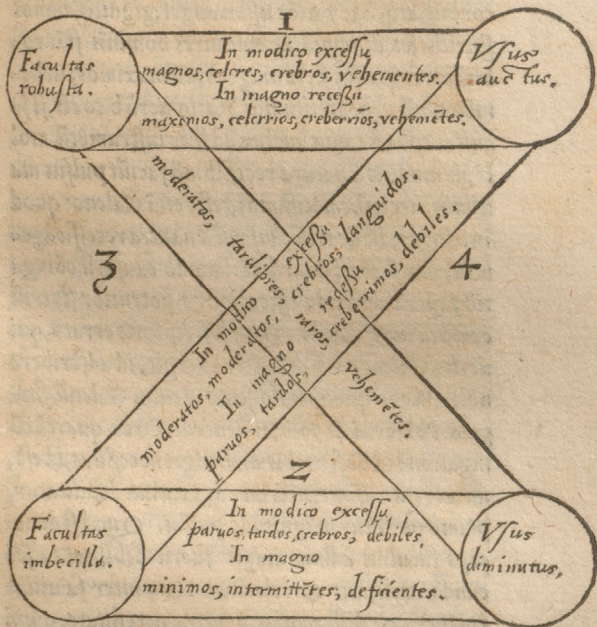 1
Facultas
robusta.
In modico excessu
magnos, celeres, crebros, vehementes.
In magno recessu
maximos, celerrīos, creberrīos, vehemētes.
Vsus
auctus.
3
moderatos, tardiores, raros, vehemētes.
4
In modico excessu
moderatos, moderatos, crebros, languidos.
In magno recessu
paruos, tardos, creberrimos, debiles.
2
Facultas
imbecilla.
In modico excessu
paruos, tardos, crebros, debiles,
In magno
minimos, intermittētes, deficientes.
Vsus
diminutus,